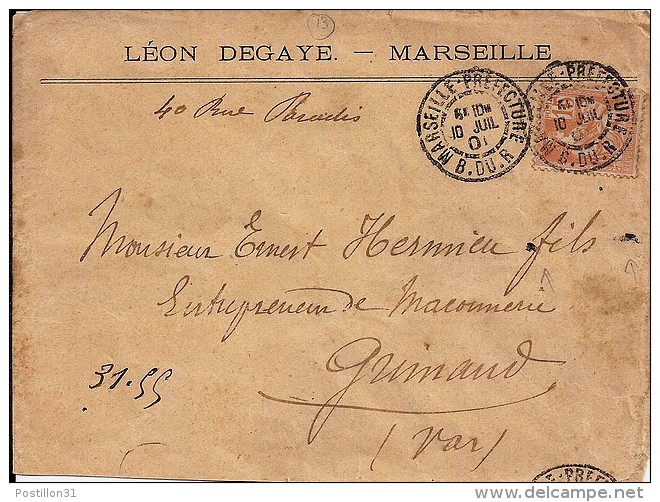 13
LÉON DEGAYE. — MARSEILLE
40 Rue Paradis
MARSEILLE-PREFECTURE
10 JUIL
01
B. DU. R
PREFECTURE
10 JUIL
B. DU. R
Monsieur Ernest Hermieu fils
Entrepreneur de Maconnerie
Grimaud
31.55
(Var)
Postillon31
www.delcampe.net